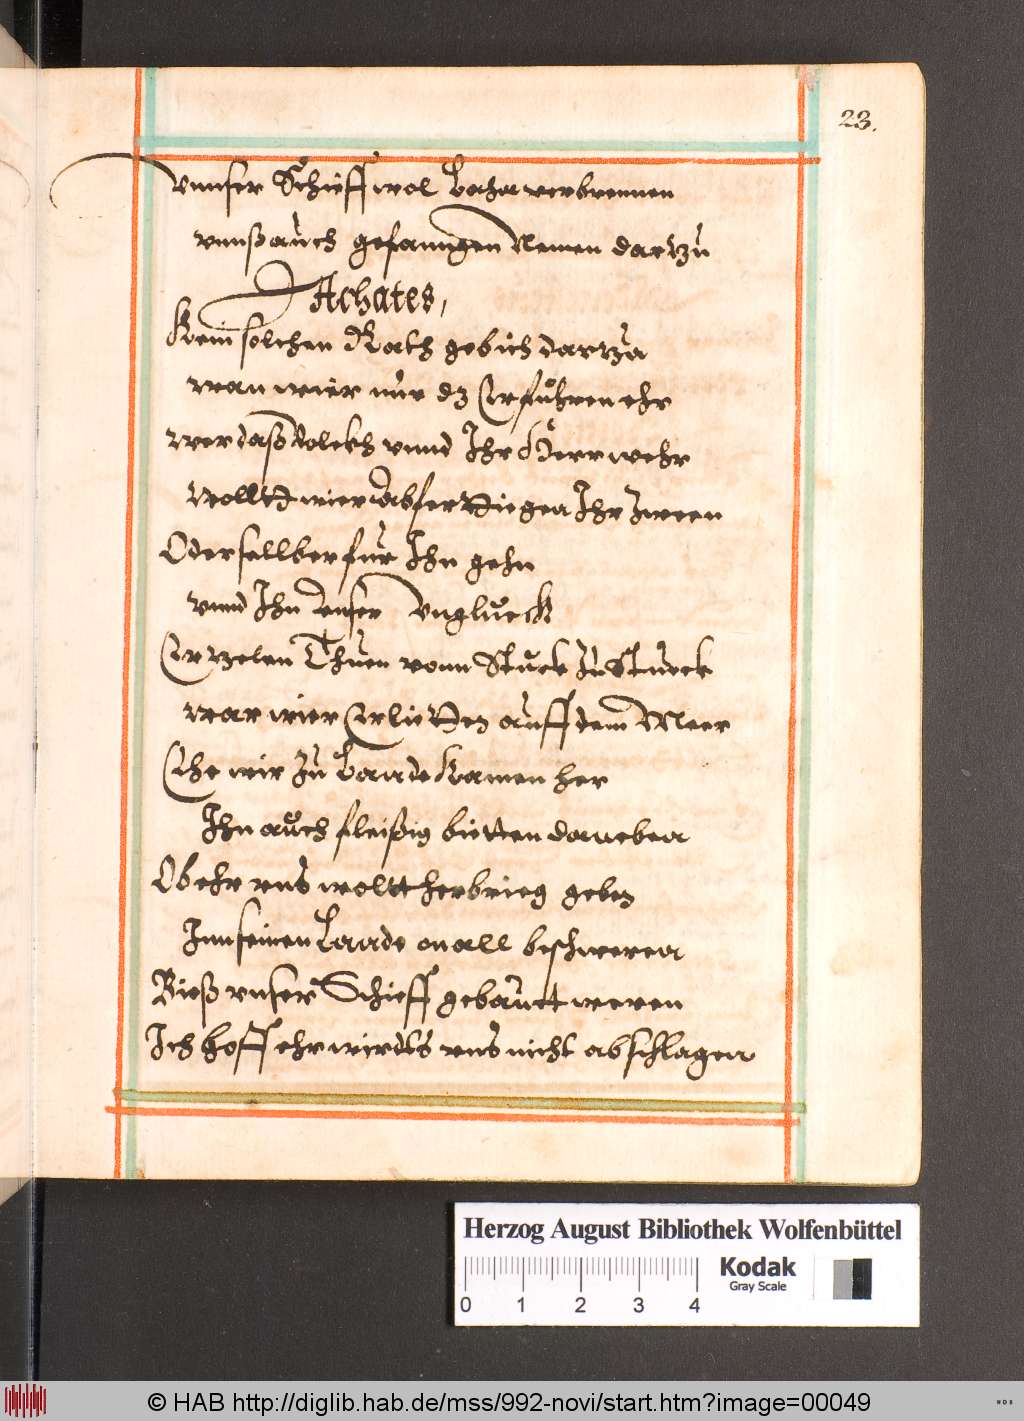 23.
vnnser Schieff wol Lahn verbrennen
vnnß auch gefanngen Nemen darzu
Achates,
Kein solchen Rath geb ich darzu
wan wier nur dz Erfuhren ehr
wer daß Volckh vnnd Ihr Herr wehr
wolltt wier Abferttigen Ihr zween
Oder sellber fur Ihn gehn
vnnd Ihn Vnser Vnglueck
Erzelen Thuen vonn Stuck Zu Stueck
war wier Erlietten auff dem Meer
Ehe wir zu Lande Kamen her
Ihn auch fleißig bietten daneben
Ob ehr vns woltt herbrieg geben
Inn seinen Lande on all beschweren
Bieß vnser Schieff gebautt weren
Ich hoff ehr wirdts vns nicht abschlagen
Herzog August Bibliothek Wolfenbüttel
0 1 2 3 4
Kodak
Gray Scale
© HAB http://diglib.hab.de/mss/992-novi/start.htm?image=00049